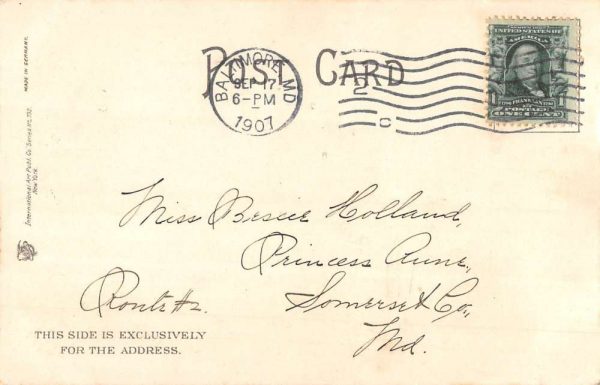 POST CARD
BALTIMORE, MD
SEP 17
6-PM
1907
2
C
UNITED STATES OF AMERICA
FRANKLIN
POSTAGE
1 1
ONE CENT
MADE IN GERMANY.
International Art Publ. Co. Series No. 732.
New York.
Miss Bessie Holland,
Princess Anne,
Route #2. Somerset Co.,
Md.
THIS SIDE IS EXCLUSIVELY
FOR THE ADDRESS.